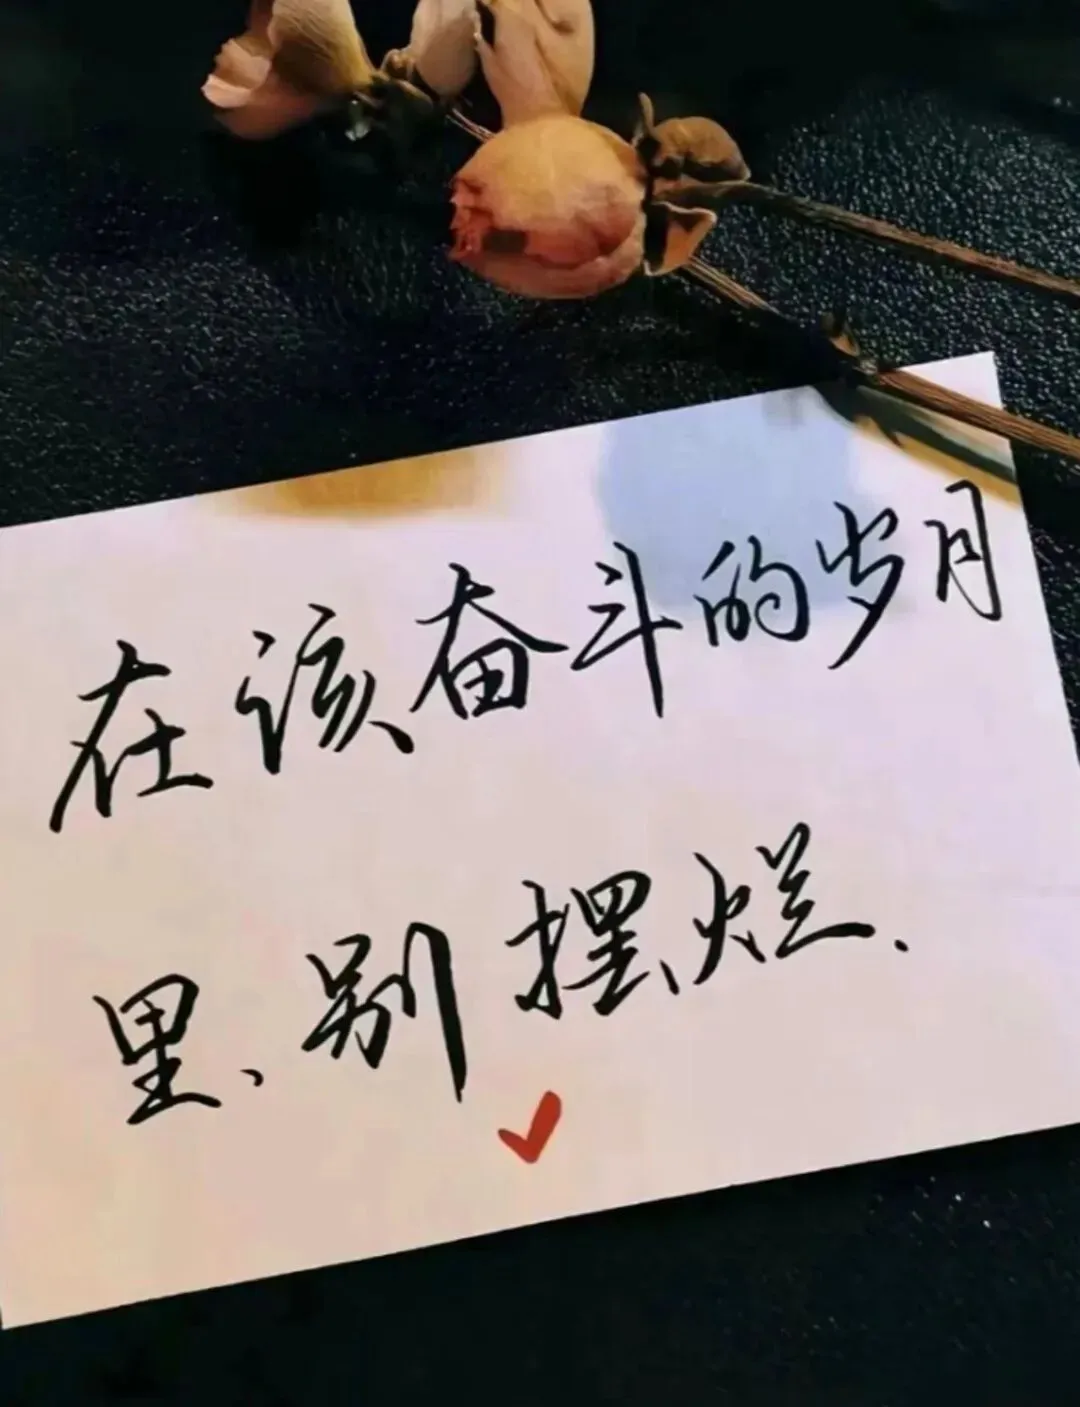 在该奋斗的岁月
里、别摆烂.